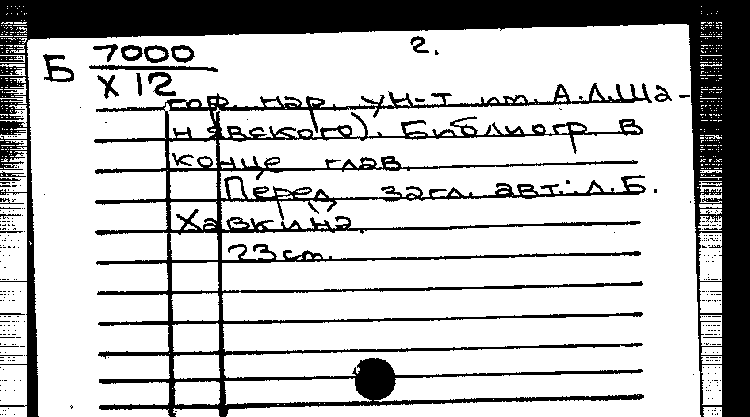 2.
Б 7000
X 12
гор. нар. ун-т им. А.Л.Ша-
нявского). Библиогр. в
конце глав.
Перед загл. авт.: Л.Б.
Хавкина.
23 см.